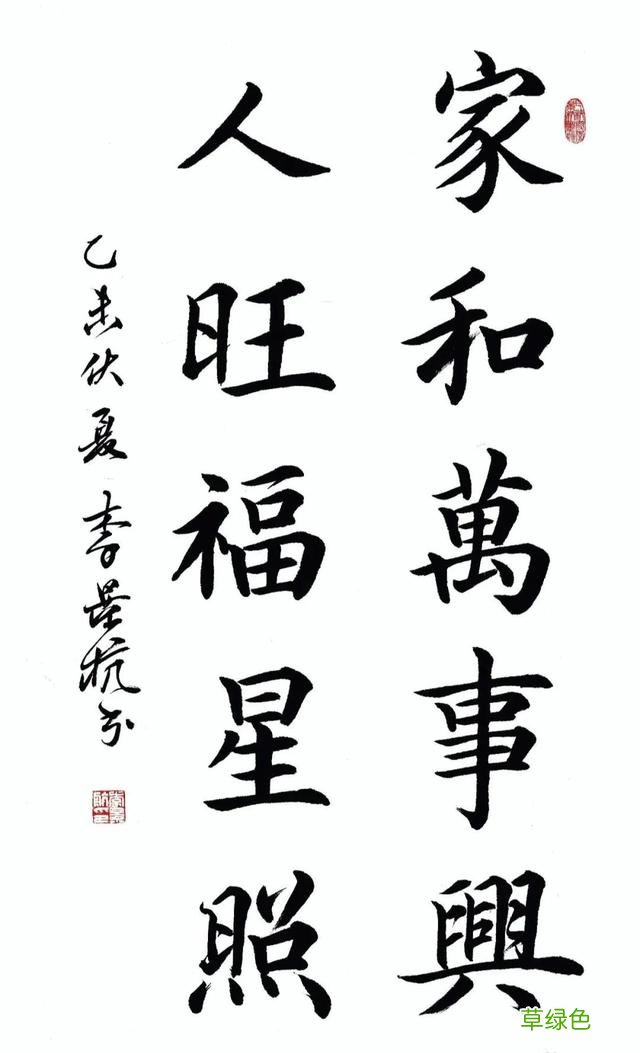 家和萬事興
人旺福星照
乙未伏夏 李书
草绿色